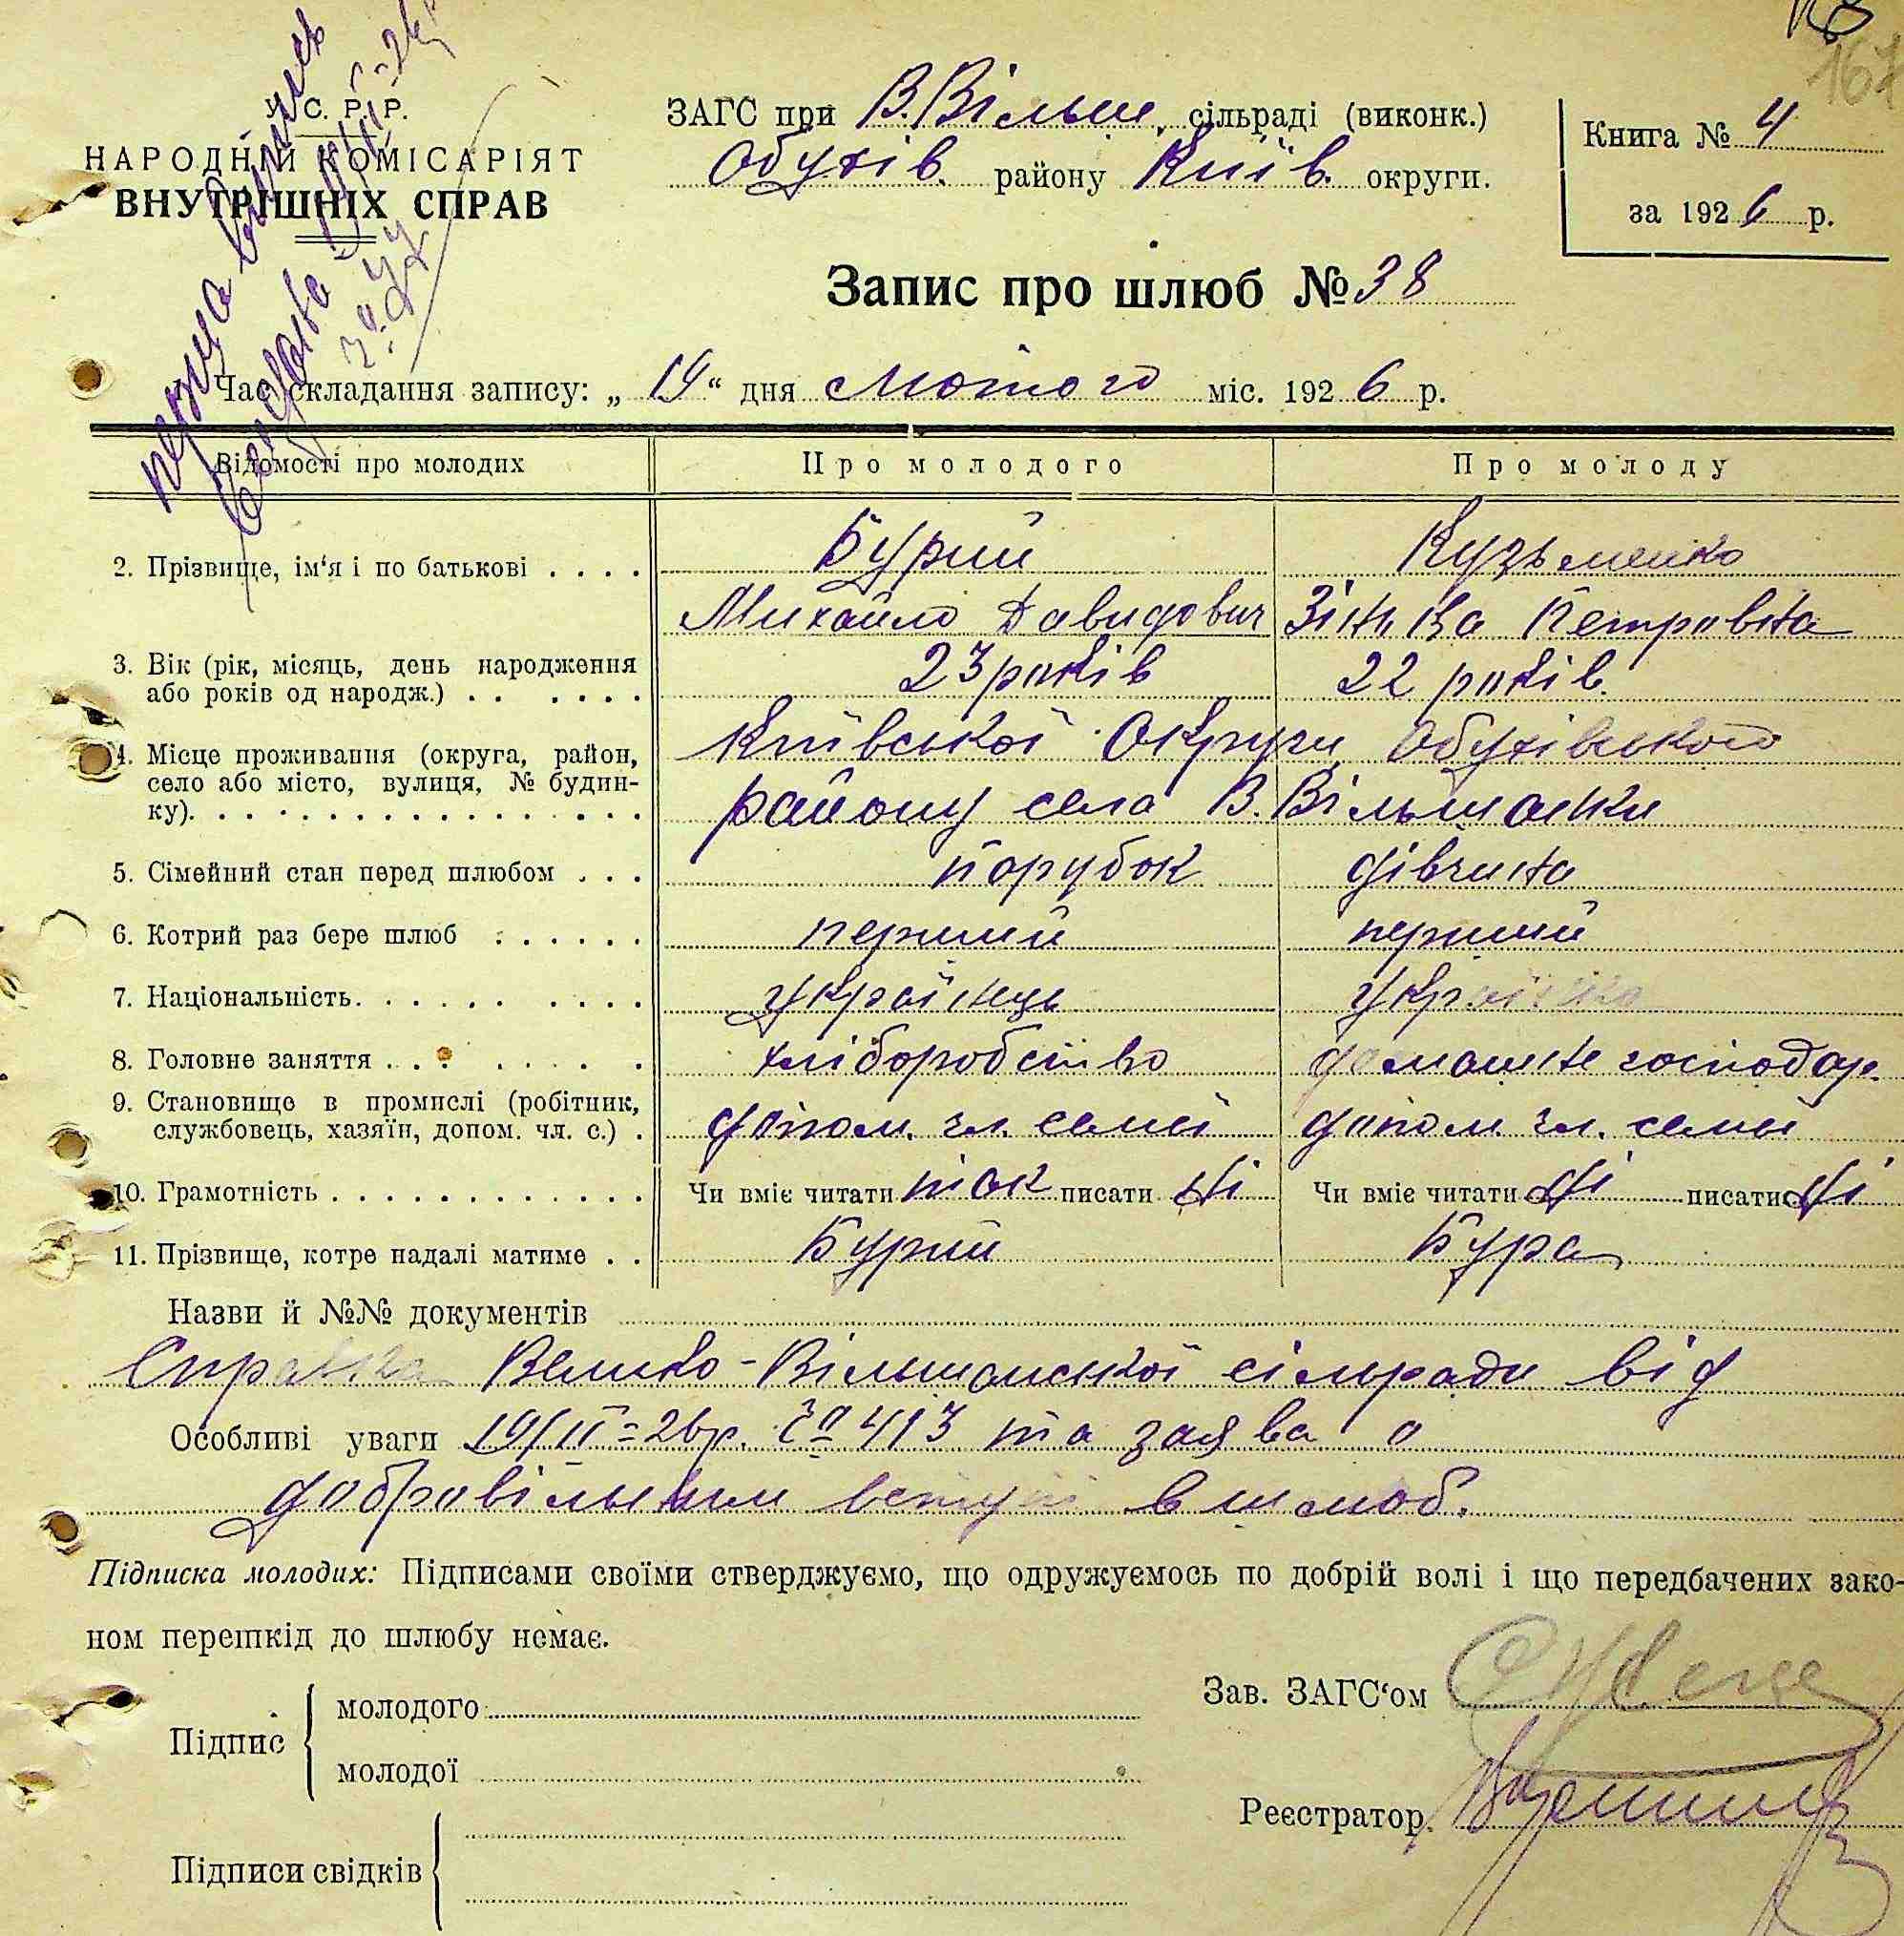 167
У. С. Р. Р.
НАРОДНІЙ КОМІСАРІЯТ
ВНУТРІШНІХ СПРАВ
ЗАГС при В. Вільш. сільраді (виконк.)
Обухів. району Київ. округи.
Книга № 4
за 1926 р.
Запис про шлюб № 38
Час складання запису: „19“ дня Лютого міс. 1926 р.
Відомості про молодих
Про молодого
Про молоду
2. Прізвище, ім‘я і по батькові . . . .
Бурий
Кузьменко
Михайло Давидович
Зінька Петровна
3. Вік (рік, місяць, день народження
або років од народж.) . . . . . .
23 років
22 років.
4. Місце проживання (округа, район,
село або місто, вулиця, № будин-
ку). . . . . . . . . . . . . . .
Київської Округи Обухівського
району села В. Вільшанки
5. Сімейний стан перед шлюбом . . .
парубок
дівчина
6. Котрий раз бере шлюб . . . . . .
перший
перший
7. Національність. . . . . . . . .
українець
українка
8. Головне заняття . . . . . . . .
хліборобство
домашнє господар.
9. Становище в промислі (робітник,
службовець, хазяїн, допом. чл. с.) .
допом. чл. семьї
допом чл. семьї
10. Грамотність . . . . . . . . . . . . .
Чи вміє читати так писати ні
Чи вміє читати ні писати ні
11. Прізвище, котре надалі матиме . .
Бурий
Бура
Назви й №№ документів
Справка Велико-Вільшанської сільради від
Особливі уваги 19/II-26р. за 413 та заява о
добровільнім вступі в шлюб.
Підписка молодих: Підписами своїми стверджуємо, що одружуємось по добрій волі і що передбачених зако-
ном перешкід до шлюбу немає.
Зав. ЗАГС‘ом
Підпис
молодого
молодої
Реєстратор
Підписи свідків